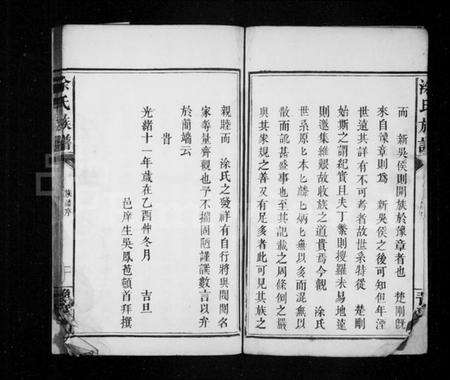 而　新吳侯則開族於豫章者也　楚剛旣
來自豫章則爲　新吳侯之後可知但年湮
世遠其詳有不可考者故世系特從　楚剛
始斯之謂紀實且夫丁繁則搜羅未易地遠
則邀集維艱故收族之道貴焉今觀　涂氏
世系原原本本
散而詭甚盛事也至其記載之周條例之嚴
與其家規之善又有足多者此可見其族之
親睦而　涂氏之發祥有自行將與閥閱名
家等量齊觀也予不揣固陋謹譔數言以弁
於簡端云
旹
光緒十一年歲在乙酉仲冬月　吉旦
邑庠生吳鳳苞頓首拜撰
涂氏族譜